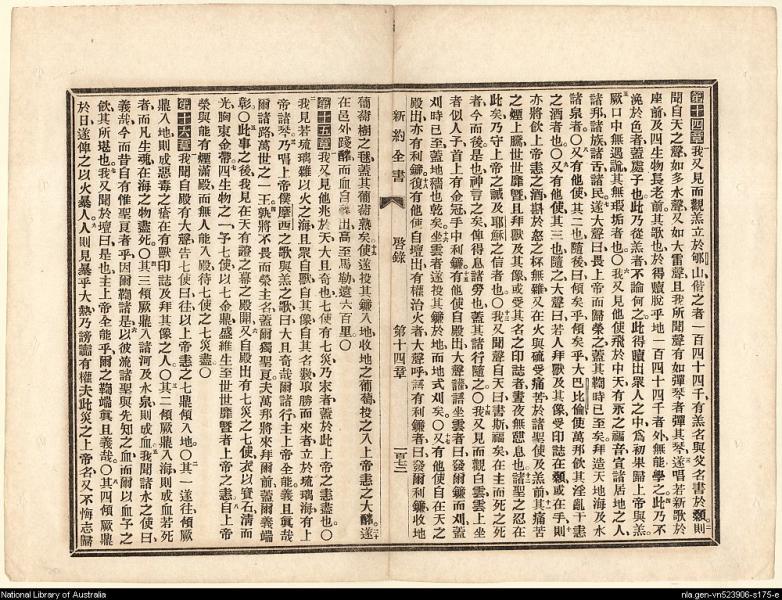 第十四章 我又見而觀羔立於郇山偕之者一百四十四千有羔名與父名書於額則
聞自天之聲如多水聲又如大雷聲且我所聞聲有如彈琴者彈其琴遂唱若新歌於
座前及四生物長老前其歌也於得贖脫乎地一百四十四千者外無能學之此乃不
浼於色者蓋處子也此乃從羔者不論何之此得贖出衆人之中爲初果歸上帝與羔
厥口中無遇謊其無瑕垢者也〇我又見他使飛於中天有永之福音宣諸居地之人
諸邦諸族諸舌諸民遂大聲曰畏上帝而歸榮之蓋其鞫時已至矣拜造天地海及水
諸泉者〇又有他使其二也隨後曰傾矣乎傾矣乎大巴比倫使萬邦飲其淫亂干恚
之酒者也〇又有他使其三也隨之大聲曰若人拜獸及其像受印誌在額或在手則
亦將飲上帝恚之酒斟於怒之杯無雜又在火與硫受痛苦於諸聖使及羔前其痛苦
之煙上騰世世靡曁且拜獸及其像或受其名之印誌者晝夜無憩息也諸聖之忍在
此矣乃守上帝之誡及耶穌之信者也〇我又聞聲自天曰書斯福矣在主而死之死
者今而後是也神言之矣俾得息諸勞也蓋其諸行隨之〇我又見而觀白雲雲上坐
者似人子首上有金冠手中利鐮有他使自殿出大聲籲坐雲者曰發爾鐮而刈蓋
刈時已至蓋地穡也乾矣坐雲者遂投其鐮於地而地式刈矣〇又有他使自在天之
殿出亦有利鐮復有他使自壇出有權治火者大聲呼有利鐮者曰發爾利鐮收地
新約全書
啓錄
第十四章
葡萄樹之毬蓋其葡萄熟矣使遂投其鐮入地收地之葡萄投之入上帝恚之大醡遂
在邑外踐醡而血自醡出高至馬勒遠六百里〇
第十五章 我又見他兆於天大且奇也七使有七災乃末者蓋於此上帝之恚盡也〇
我見若琉璃雜以火之海且衆自獸自其像自其名數取勝而來者立於琉璃海有上
帝諸琴乃唱上帝僕摩西之歌與羔之歌曰大且奇哉爾諸行主上帝全能義且眞哉
爾諸路萬世之王孰將不畏而榮主名蓋爾獨聖夏夫萬邦將來拜爾前蓋爾義端
彰〇此事之後我見在天有證之幕之殿開又自殿出有七災之七使衣以寶石清而
光胸束金帶四生物之一予七使以七金鼎盛維生至世世靡曁者上帝之恚自上帝
榮與能有煙滿殿而無人能入殿待七使之七災盡〇
第十六章 我聞自殿有大聲告七使曰往以上帝恚之七鼎傾入地〇其一遂往傾厥
鼎入地則成惡毒之瘡在有獸印誌及拜其像之人〇其二傾厥鼎入海則成血若死
者而凡生魂在海之物盡死〇其三傾厥鼎入諸河及水泉則成血我聞諸水之使曰
義哉今而昔自有惟聖夏者乎因爾鞫諸是以彼流諸聖與先知之血而爾以血予之
飲其所堪也我又聞於壇曰是也主上帝全能乎爾之鞫端眞且義哉〇其四傾厥鼎
於日遂俾之以火暴人人則見暴乎大熱乃謗讟有權夫此災之上帝名又不悔志歸
National Library of Australia
nla.gen-vn523906-s175-e